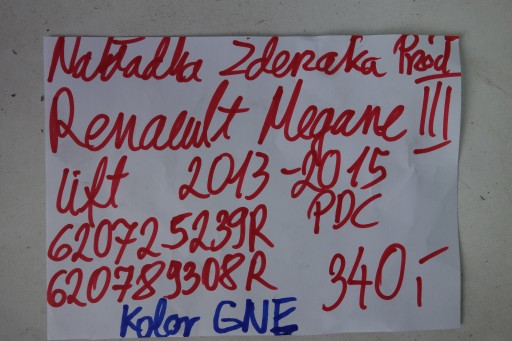 Nakładka Zderzaka Przód
Renault Megane III
lift 2013-2015
620725239R PDC
620789308R 340,-
Kolor GNE